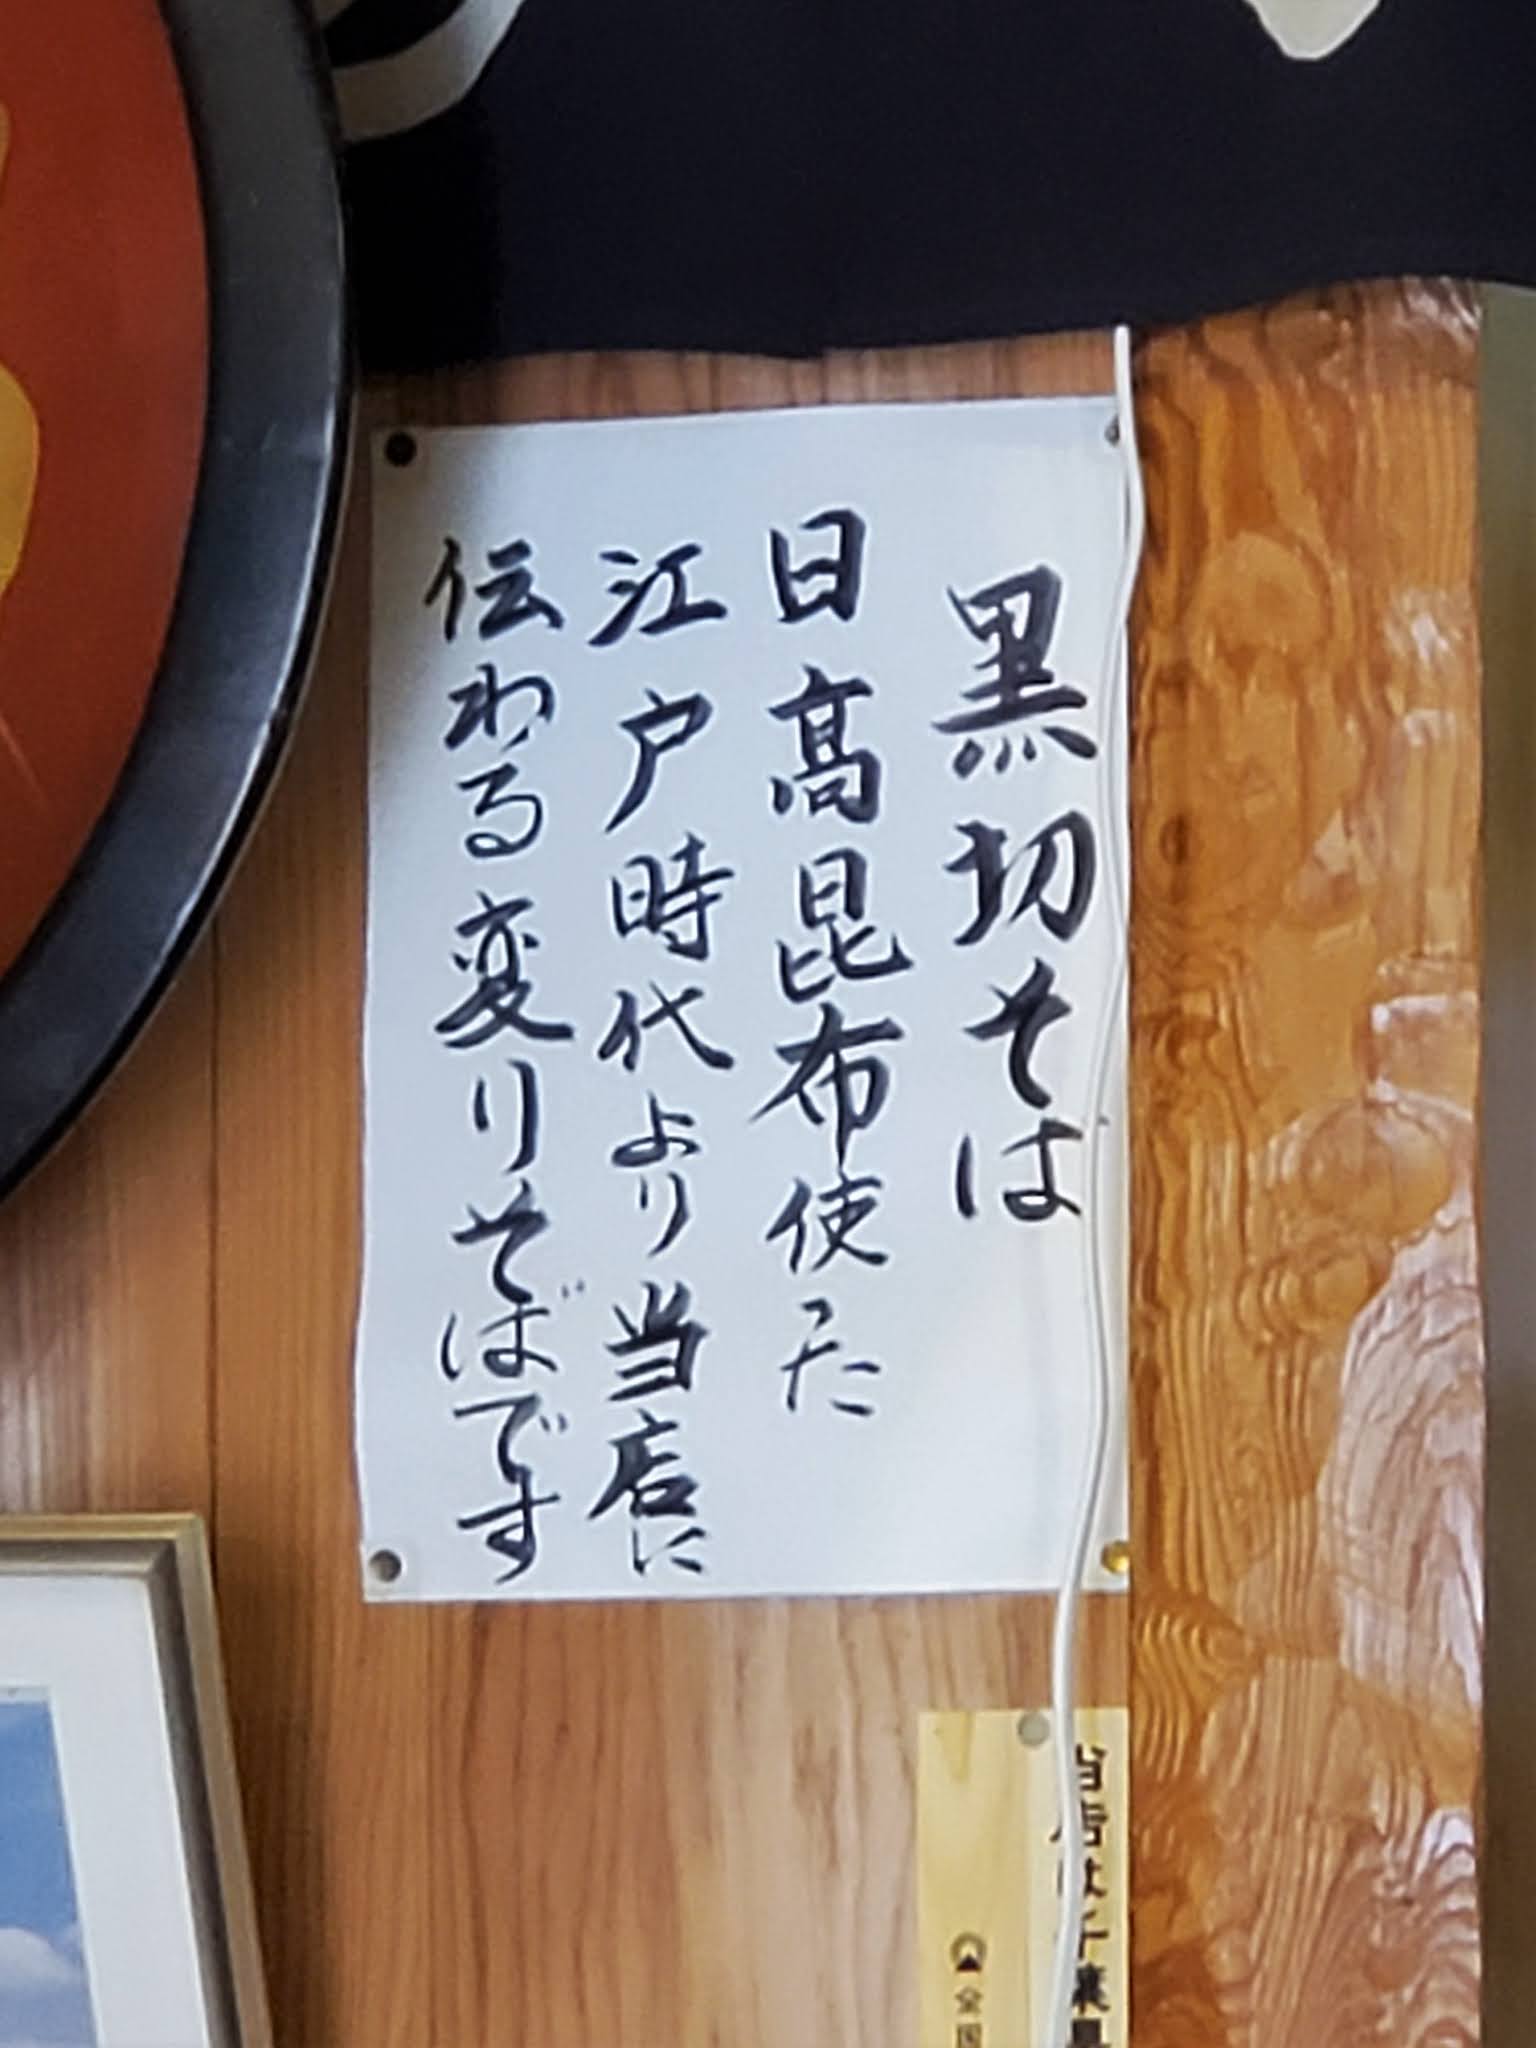 黒切そは
日高昆布使った
江戸時代より当店に
伝わる変りそばです
当店は千葉県
全国